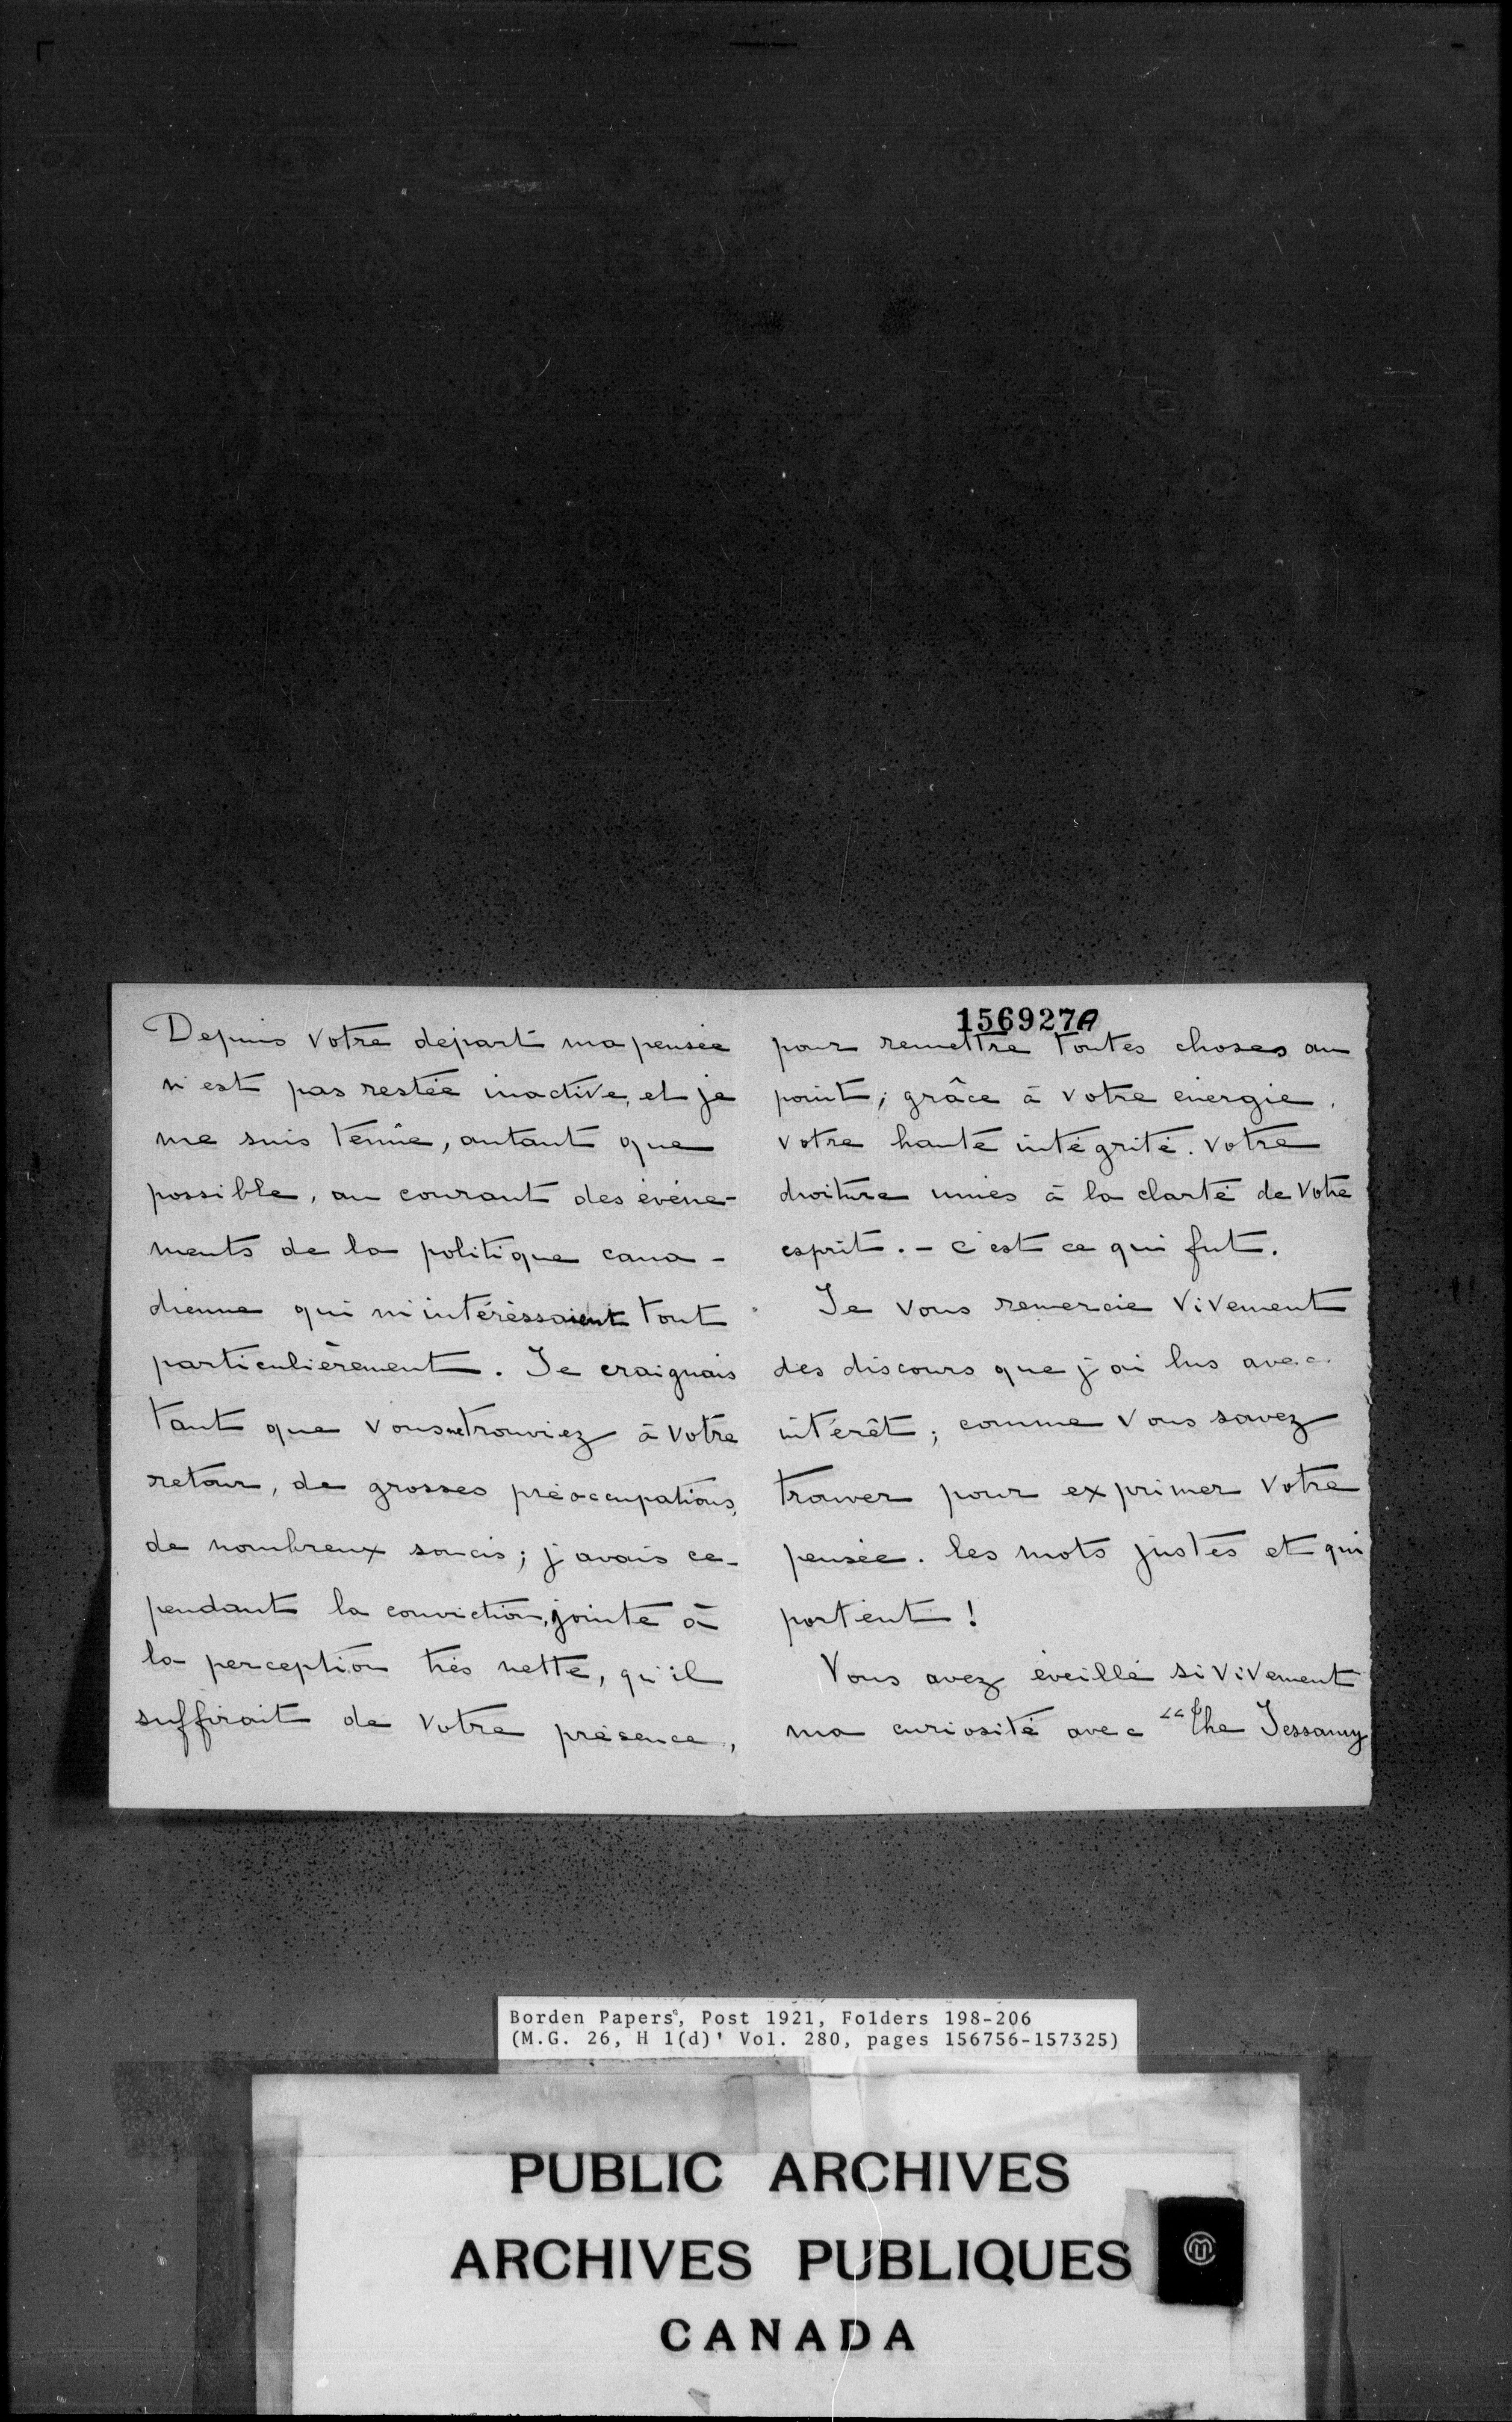 Depuis votre départ ma pensée
n'est pas restée inactive, et je
me suis tenue, autant que
possible, au courant des événe-
ments de la politique cana-
dienne qui m'intéréssaient tout
particulièrement. Je craignais
tant que vous ne trouviez à votre
retour, de grosses préoccupations,
de nombreux soucis; j'avais ce-
pendant la conviction, jointe à
la perception très nette, qu'il
suffirait de votre présence,
156927A
pour remettre toutes choses au
point; grâce à votre énergie,
votre haute intégrité. votre
droiture unies à la clarté de votre
esprit. - c'est ce qui fut.
Je vous remercie vivement
des discours que j'ai lus avec
intérêt; comme vous savez
trouver pour exprimer votre
pensée. les mots justes et qui
portent!
Vous avez éveillé si vivement
ma curiosité avec "the Jessamy
Borden Papers, Post 1921, Folders 198-206
(M.G. 26, H 1(d)' Vol. 280, pages 156756-157325)
PUBLIC ARCHIVES
ARCHIVES PUBLIQUES
CANADA